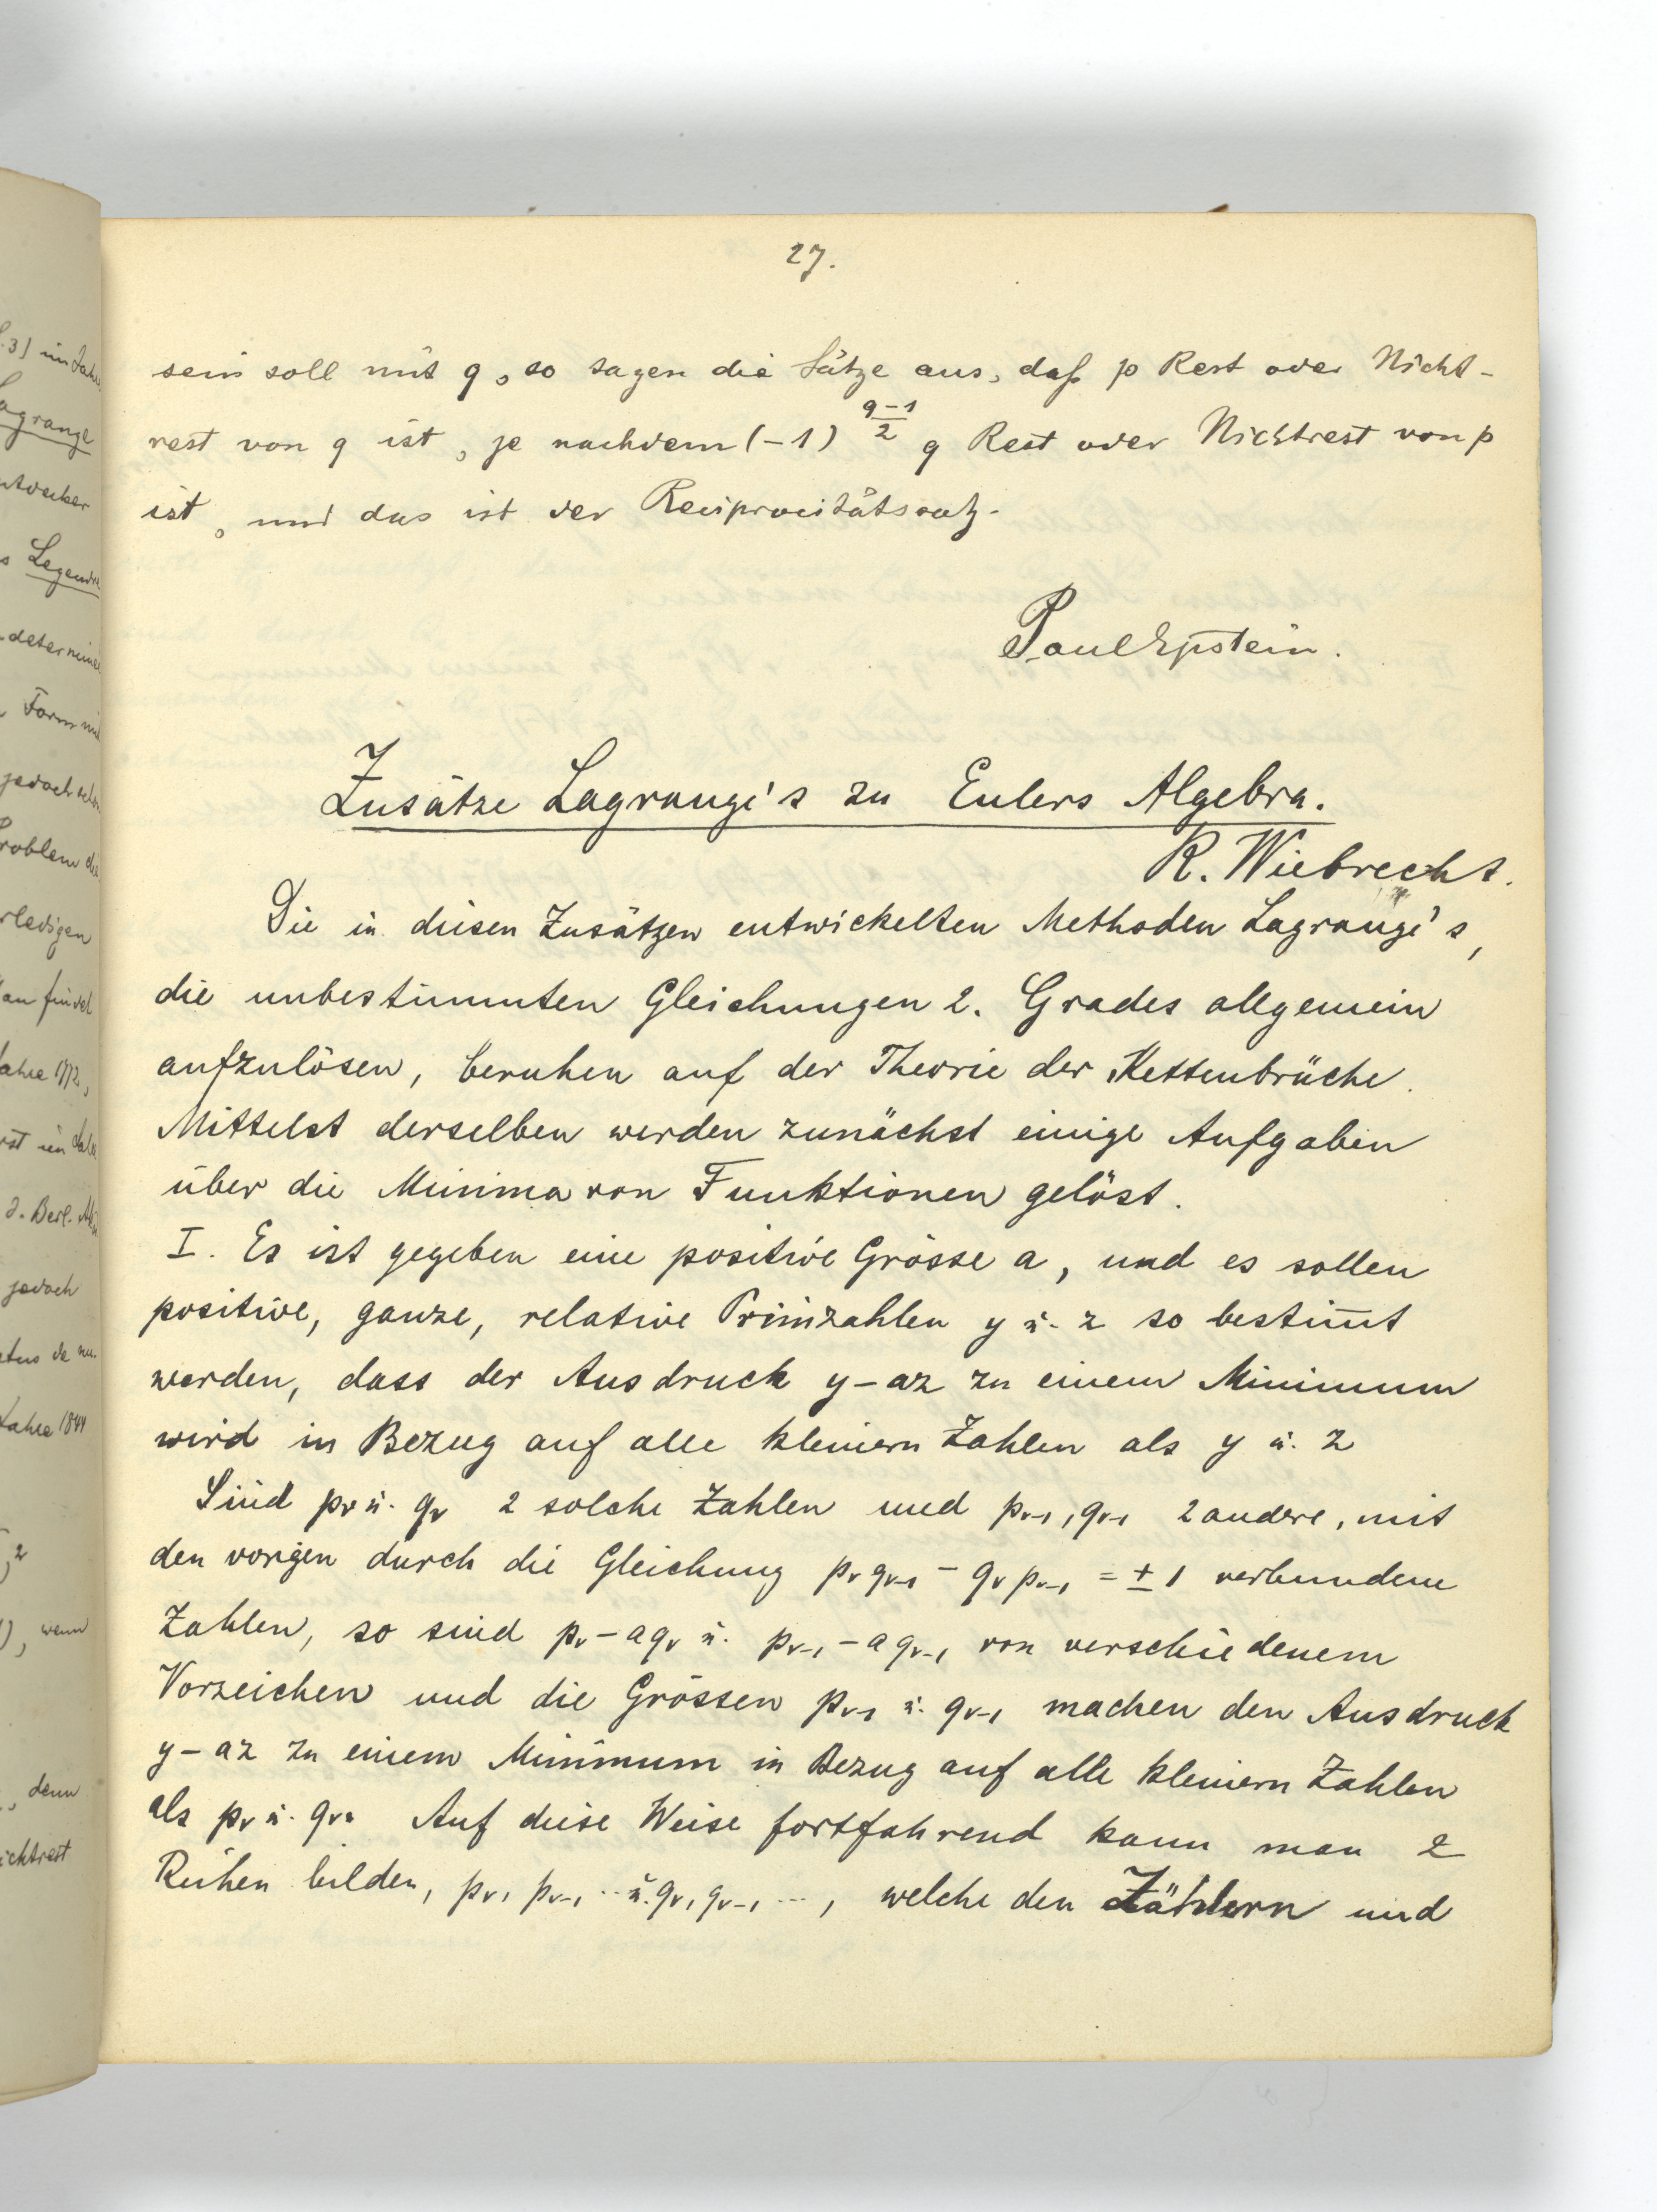 27.
sein soll mit q, so sagen die Sätze aus, daß p Rest oder Nicht-
rest von q ist, je nachdem (-1)^{\frac{q-1}{2}} q Rest oder Nichtrest von p
ist, und das ist der Reciprocitätssatz.
Paul Epstein.
Zusätze Lagrange's zu Eulers Algebra.
R. Wiebrecht.
Die in diesen Zusätzen entwickelten Methoden Lagrange's,
die unbestimmten Gleichungen 2. Grades allgemein
aufzulösen, beruhen auf der Theorie der Kettenbrüche.
Mittelst derselben werden zunächst einige Aufgaben
über die Minima von Funktionen gelöst.
I. Es ist gegeben eine positive Grösse a, und es sollen
positive, ganze, relative Primzahlen y u. z so bestim̅t
werden, dass der Ausdruck y-az zu einem Minimum
wird in Bezug auf alle kleinern Zahlen als y u. z
Sind p_ν u. q_ν 2 solche Zahlen und p_{ν-1}, q_{ν-1} 2 andere, mit
den vorigen durch die Gleichung p_ν q_{ν-1} - q_ν p_{ν-1} = ± 1 verbundene
Zahlen, so sind p_ν - a q_ν u. p_{ν-1} - a q_{ν-1} von verschiedenem
Vorzeichen und die Grössen p_{ν-1} u. q_{ν-1} machen den Ausdruck
y-az zu einem Minimum in Bezug auf alle kleinern Zahlen
als p_ν u. q_ν. Auf diese Weise fortfahrend kann man 2
Reihen bilden, p_ν, p_{ν-1} ... u. q_ν, q_{ν-1} ..., welche den Zählern und
.3) im Jah
Lagrange
Legendre
determin
Form
jedoch
roblem
rledigen
an findet
ahre 1772,
d. Berl.
jedoch
Jahre 1844
2
), wenn
, denn
ichtrest